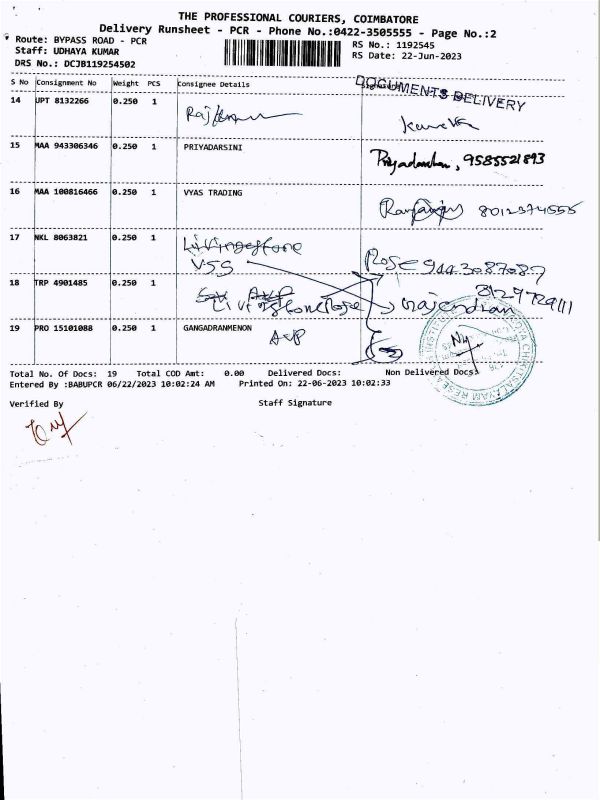 THE PROFESSIONAL COURIERS, COIMBATORE
Delivery Runsheet - PCR - Phone No.:0422-3505555 - Page No.:2
Route: BYPASS ROAD - PCR
RS No.: 1192545
Staff: UDHAYA KUMAR
RS Date: 22-Jun-2023
DRS No.: DCJB119254502
S No Consignment No Weight PCS Consignee Details
DOCUMENTS DELIVERY
14 UPT 8132266 0.250 1
15 MAA 943306346 0.250 1 PRIYADARSINI
9585521893
16 MAA 100816466 0.250 1 VYAS TRADING
8012374555
17 NKL 8063821 0.250 1 Livingestone
VSS Rose 9443087087
18 TRP 4901485 0.250 1
Livingstone Rose rajendran 8129729111
19 PRO 15101088 0.250 1 GANGADRANMENON
AVP
Total No. Of Docs: 19 Total COD Amt: 0.00 Delivered Docs: Non Delivered Docs:
Entered By :BABUPCR 06/22/2023 10:02:24 AM Printed On: 22-06-2023 10:02:33
Verified By Staff Signature